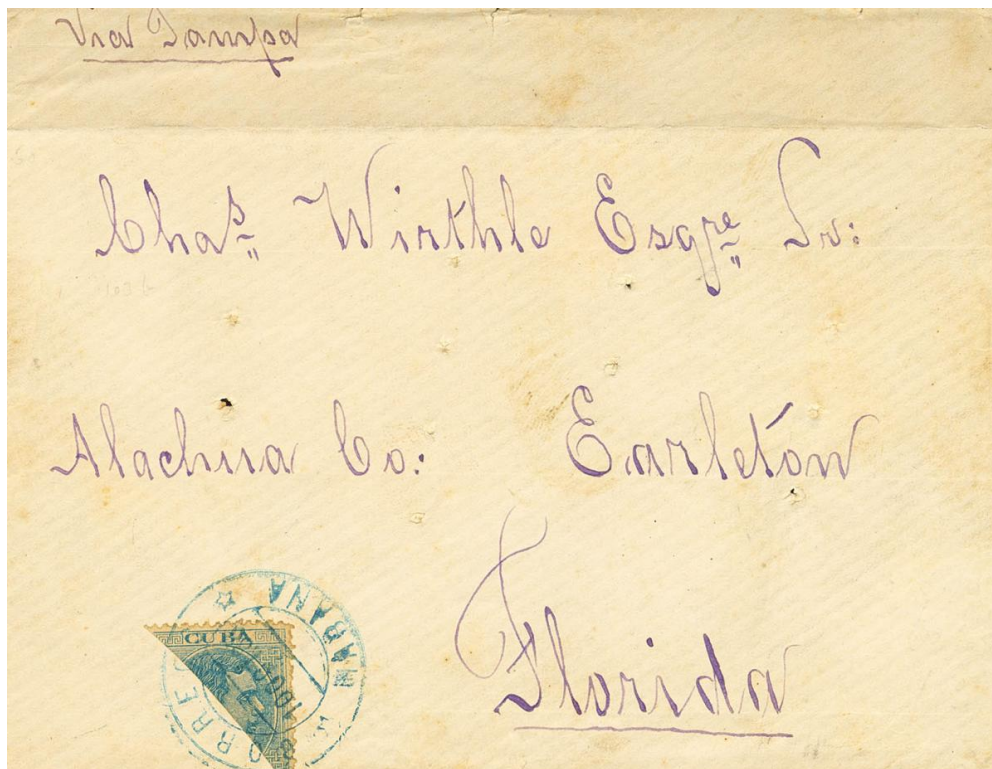 Via Tampa
Chas. Wirthle Esqre. Sr:
Alachua Co: Earletón
Florida
CUBA
HABANA